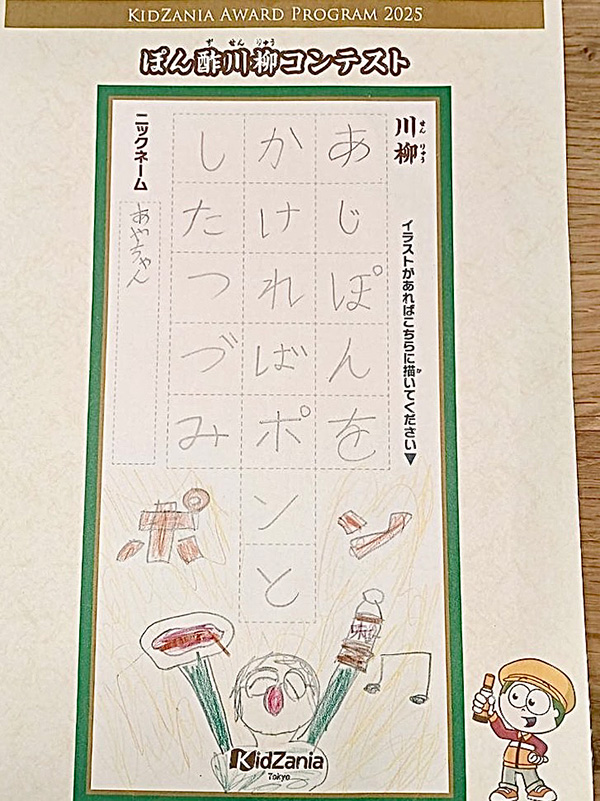 KIDZANIA AWARD PROGRAM 2025
ぽん酢川柳コンテスト
ず せん りゅう
川柳
せん りゅう
イラストがあればこちらに描いてください▼
か
あじぽんを
かければポンと
したつづみ
ニックネーム
あやちゃん
ポン
味
KidZania
Tokyo